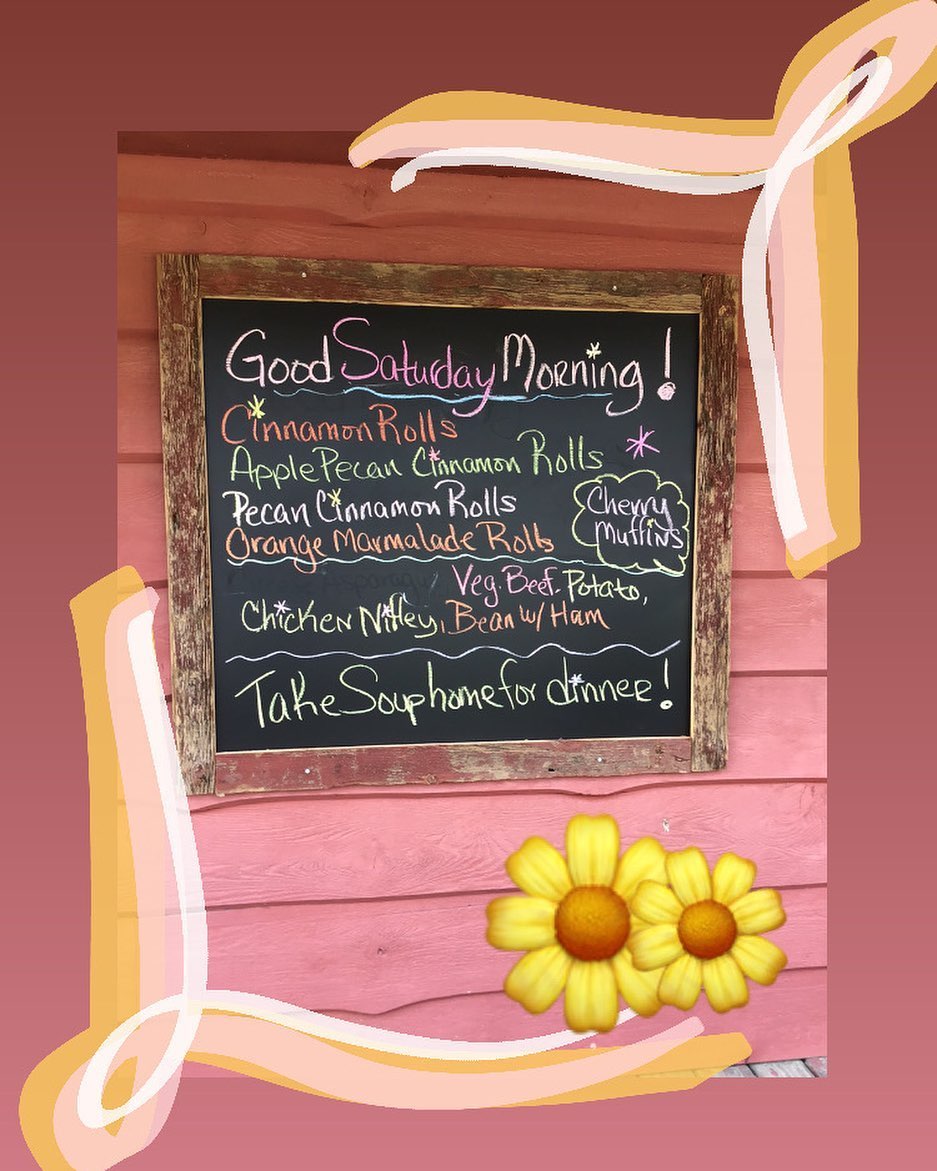 Good Saturday Morning!
Cinnamon Rolls
Apple Pecan Cinnamon Rolls
Pecan Cinnamon Rolls
Orange Marmalade Rolls
Cherry
Muffins
Veg. Beef, Potato,
Chicken Nifley, Bean w/ Ham
Take Soup home for dinner!